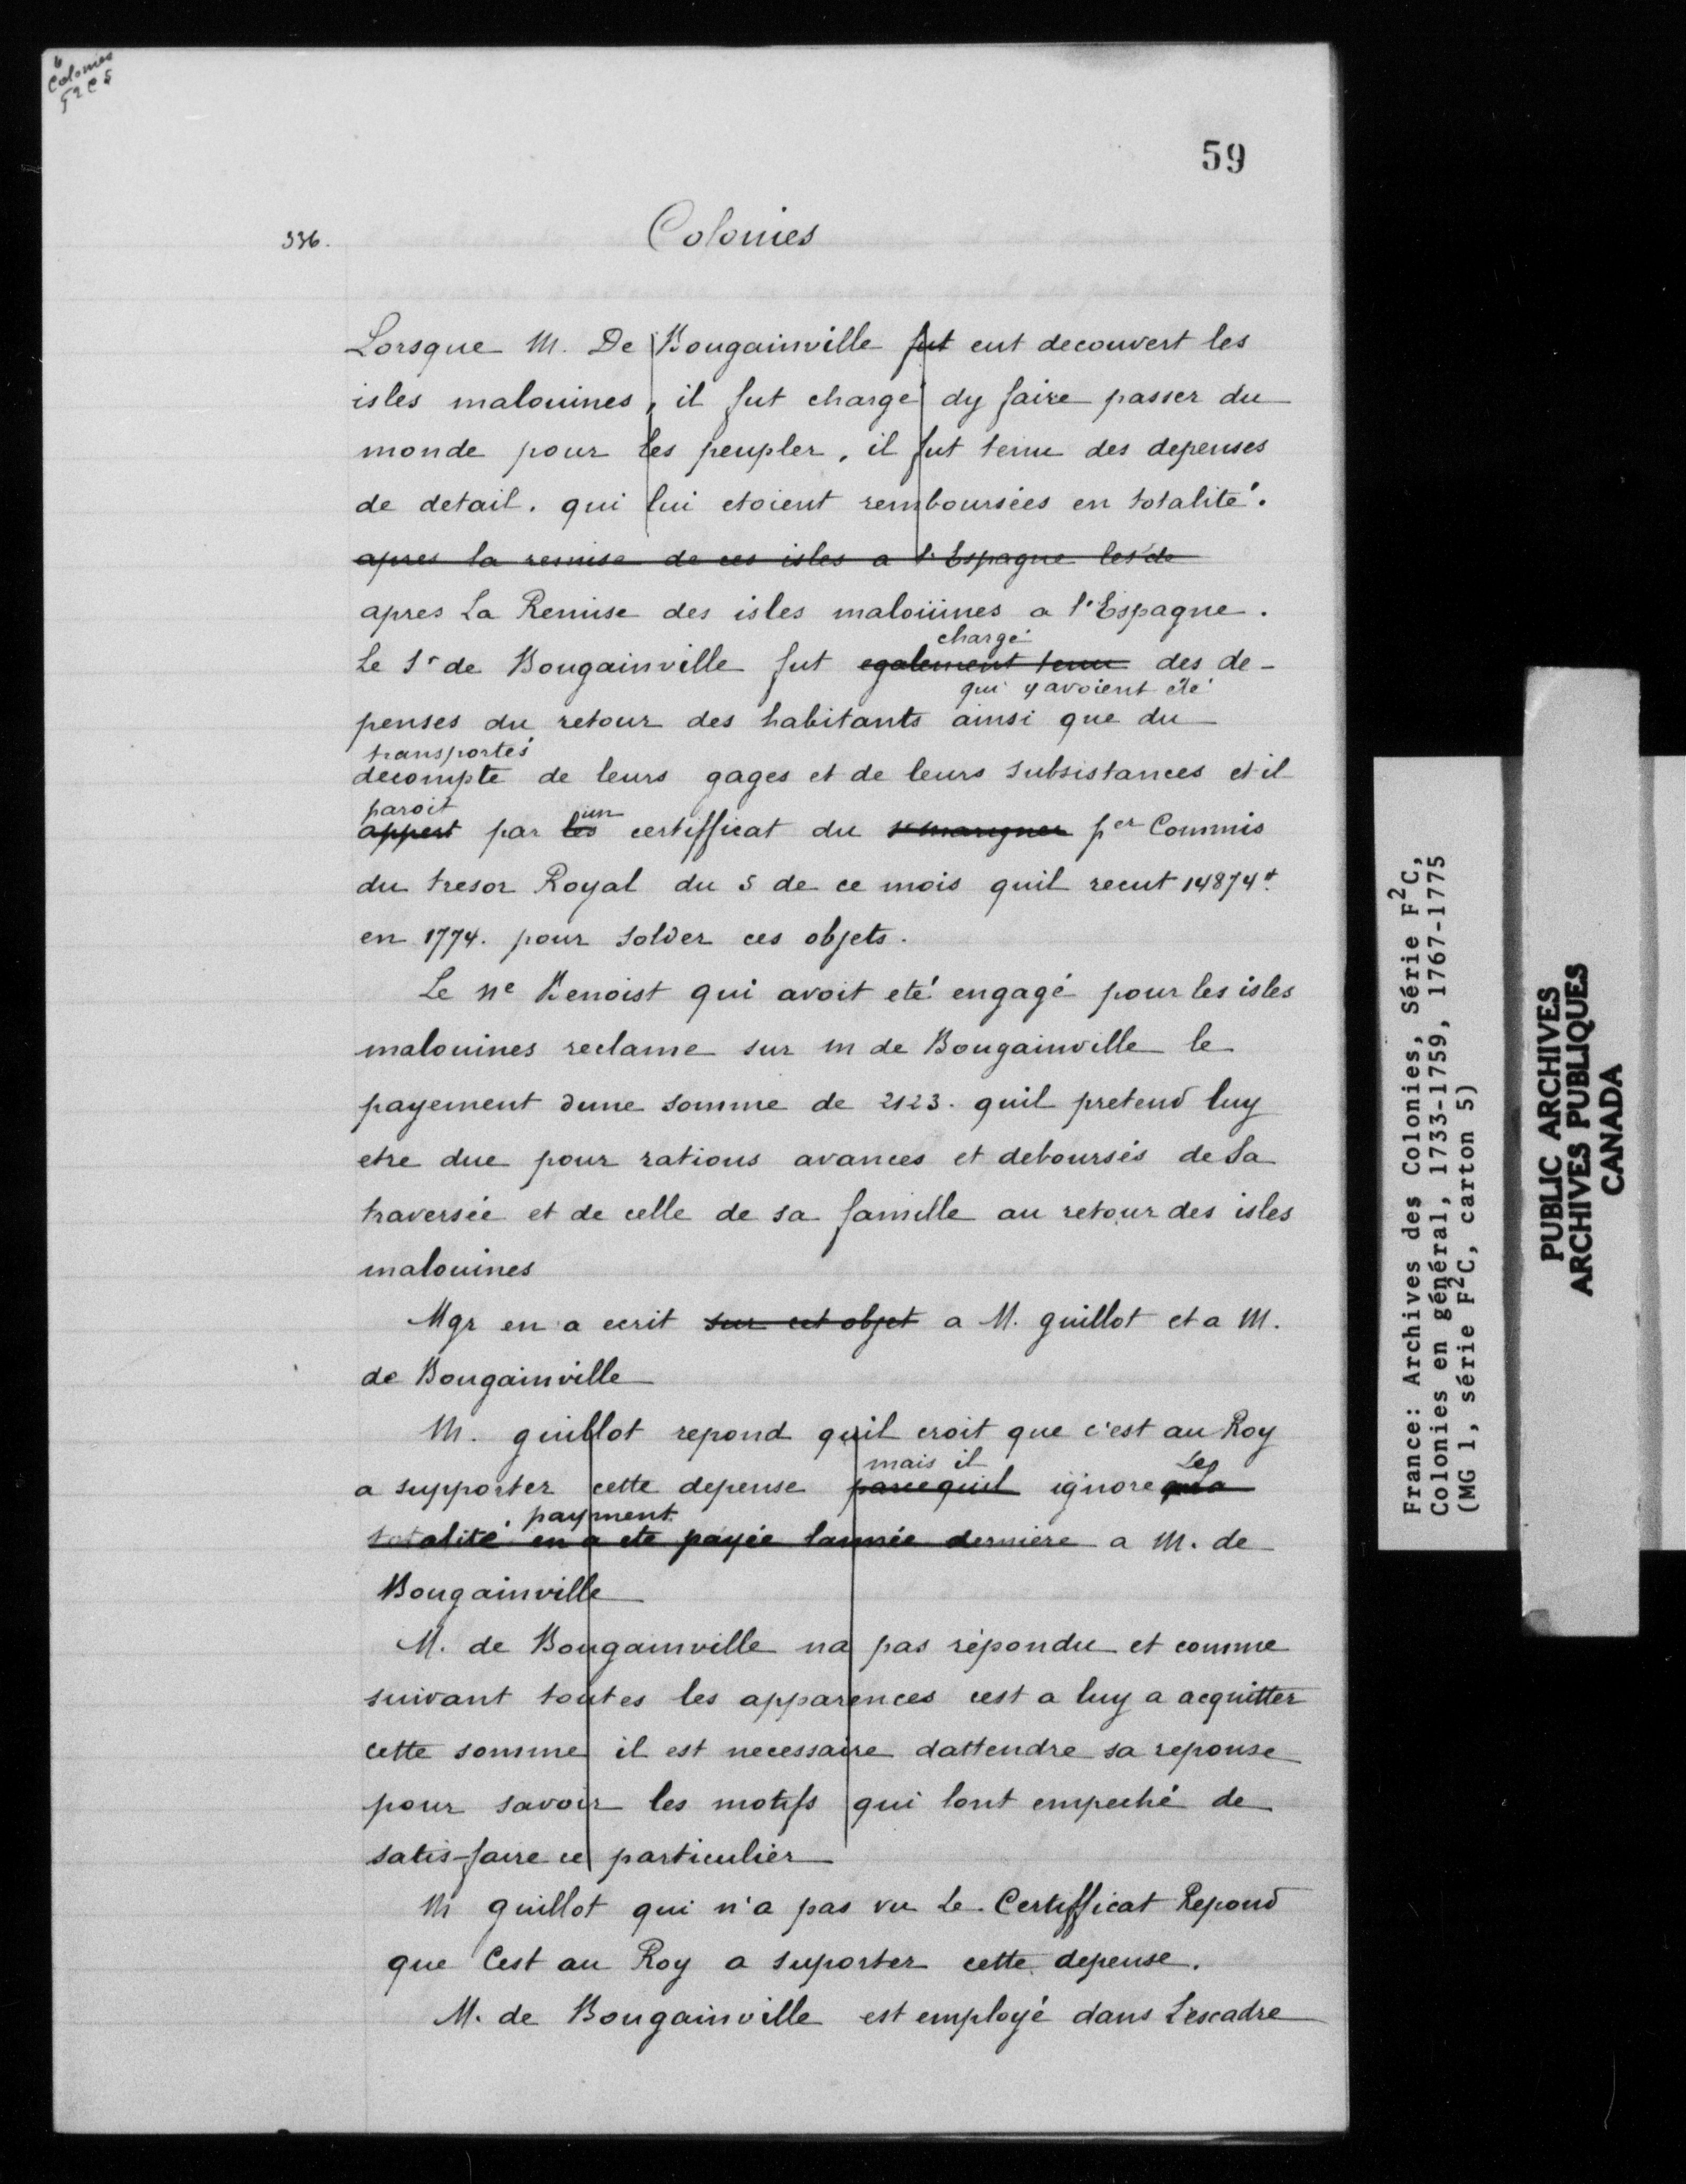 6
Colonies
F2 C 5
59
336.
Colonies
Lorsque M. De Bougainville fut eut decouvert les
isles malouines, il fut chargé dy faire passer du
monde pour les peupler, il fut tenu des depenses
de detail. qui lui etoient remboursées en totalité.
apres la remise de ces isles a l'Espagne les de
apres La Remise des isles maloüines a l'Espagne.
chargé
Le Sr de Bougainville fut egalement tenu des de-
qui y avoient été
penses du retour des habitants ainsi que du
transportés
decompte de leurs gages et de leurs subsistances et il
paroit un
appert par les certifficat du per Commis
du tresor Royal du 5 de ce mois quil recut 14874#
en 1774. pour solder ces objets.
Le ne Benoist qui avoit eté engagé pour les isles
malouines reclame sur m de Bougainville le
payement dune somme de 2123. quil pretend luy
etre due pour rations avances et deboursés de Sa
traversée et de celle de sa famille au retour des isles
malouines
Mgr en a ecrit sur cet objet a M. guillot et a M.
de Bougainville
M. guillot repond quil croit que c'est au Roy
mais il Le
a supporter cette depense parcequil ignore que La
payment
totalité en a ete payée lannée derniere a M. de
Bougainville
M. de Bougainville na pas répondu et comme
suivant toutes les apparences cest a luy a acquitter
cette somme il est necessaire dattendre sa reponse
pour savoir les motifs qui lont empeché de
satis-faire ce particulier
M guillot qui n'a pas vu Le Certifficat Repond
que Cest au Roy a suporter cette depense.
M. de Bougainville est employé dans L'escadre
France: Archives des Colonies, Série F2C,
Colonies en général, 1733-1759, 1767-1775
(MG 1, série F2C, carton 5)
PUBLIC ARCHIVES
ARCHIVES PUBLIQUES
CANADA